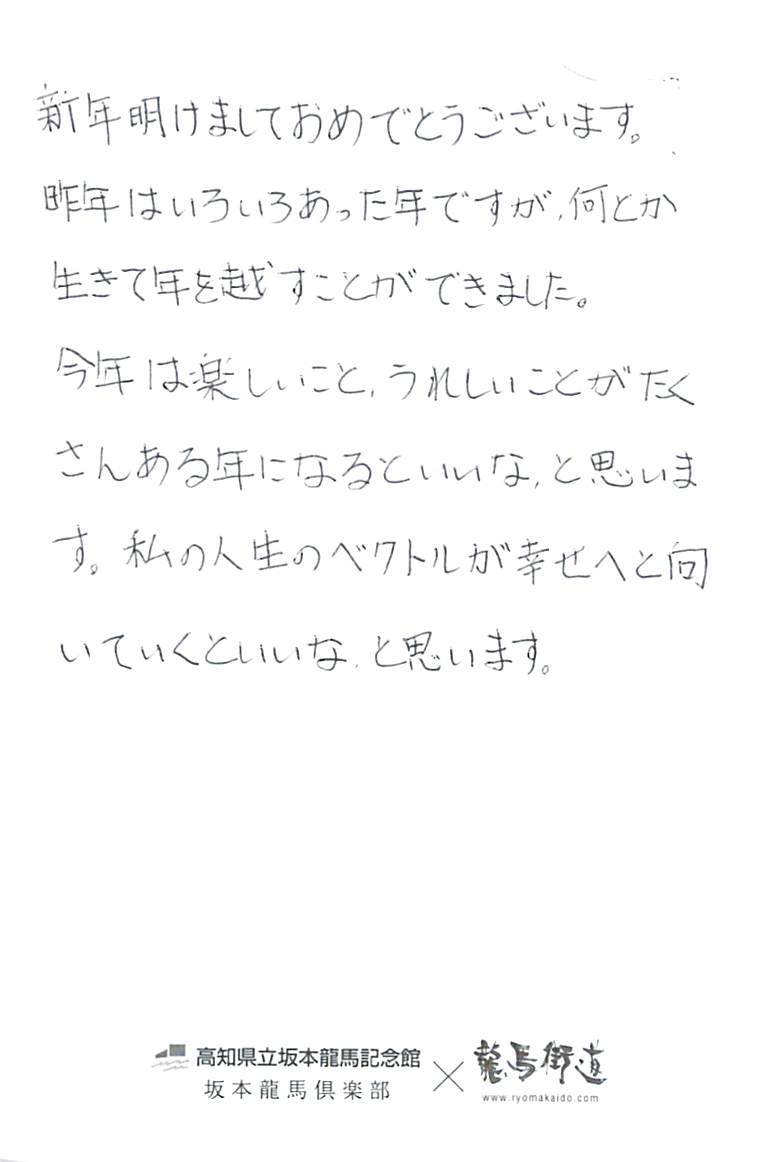 新年明けましておめでとうございます。
昨年はいろいろあった年ですが、何とか
生きて年を越すことができました。
今年は楽しいこと、うれしいことがたく
さんある年になるといいな、と思いま
す。私の人生のベクトルが幸せへと向
いていくといいな、と思います。
高知県立坂本龍馬記念館
坂本龍馬倶楽部
×
龍馬街道
www.ryomakaido.com